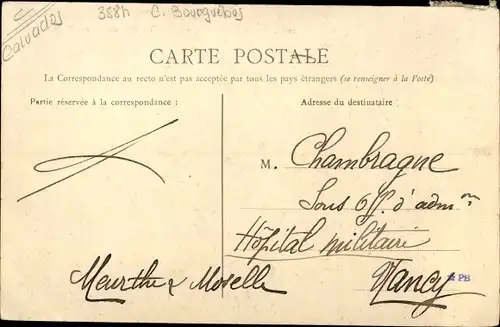 Calvados
358h C. Bourguébus
CARTE POSTALE
La Correspondance au recto n'est pas acceptée par tous les pays étrangers (se renseigner à la Poste)
Partie réservée à la correspondance :
Adresse du destinataire
M. Chambragne
Sous Off. d'admon
Hôpital militaire
Meurthe & Moselle
Nancy
PB